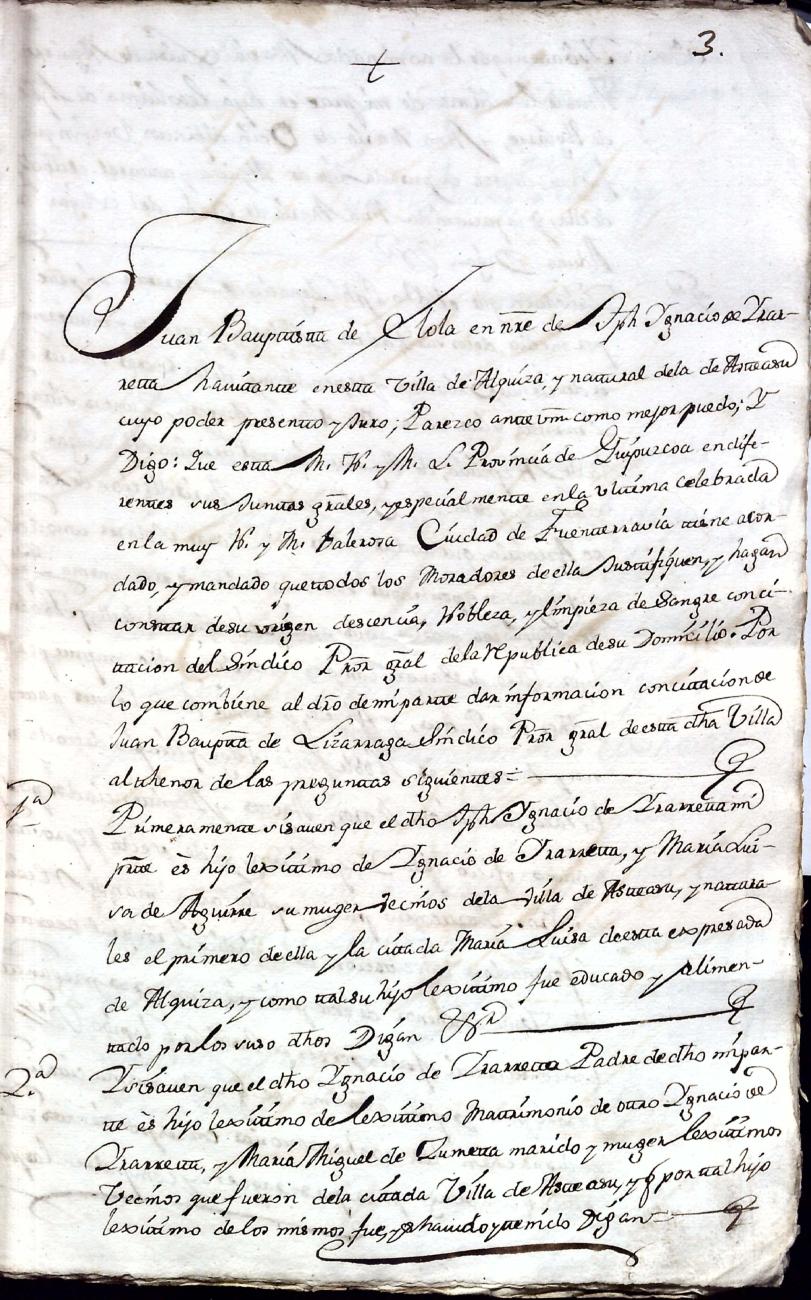 3.
+
Juan Bauptista de Elola en nre de Jph Ygnacio de Yrar-
reta havitante en esta Villa de Alquiza, y natural dela de Asteasu
cuyo poder presento y Juro; Parezco ante vm como mejor puedo; Y
Digo: Que esta M. N. y M. L. Provincia de Guipuzcoa en dife-
rentes sus Juntas grales, y especialmente en la ultima celebrada
en la muy N. y M. Valerosa Ciudad de Fuenterravia tiene acor-
dado, y mandado que todos los Moradores de ella Justifiquen, y hagan
constar de su origen descencia, Nobleza, y limpieza de Sangre con ci-
tacion del Sindico Pror gral de la Republica de su Domicilio. Por
lo que combiene al dro de mi parte dar informacion con citacion de
Juan Baupta de Lizarraga Sindico Pror gral de esta dha Villa
al thenor de las preguntas siguientes=
1a
Primeramente si saven que el dho Jph Ygnacio de Yrarreta mi
prte es hijo lexitimo de Ygnacio de Yrarreta, y Maria Lui-
sa de Aguirre su muger Vecinos dela Villa de Asteasu, y natura-
les el primero de ella y la citada Maria Luisa de esta expresada
de Alquiza, y como tal su hijo lexitimo fue educado y alimen-
tado por los suso dhos Digan &a
2.a
Y si saven que el dho Ygnacio de Yrarreta Padre de dho mi par-
te es hijo lexitimo de lexitimo Matrimonio de otro Ygnacio de
Yrarreta, y Maria Miguel de Zumeta marido y muger lexitimos
Vecinos que fueron dela citada Villa de Asteasu, y q por tal hijo
lexitimo de los mismos fue, y es havido y tenido Digan=